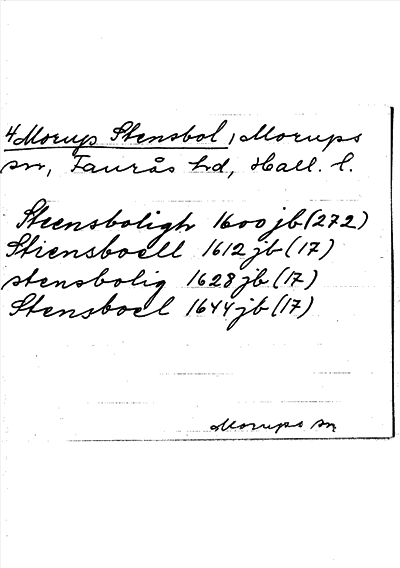 4 Morup Stensbol, Morups
sn, Faurås hd, Hall. l.
Steensboligh 1600 jb (272)
Stiensboell 1612 jb (17)
stensbolig 1628 jb (17)
Stensboel 1644 jb (17)
Morups sn